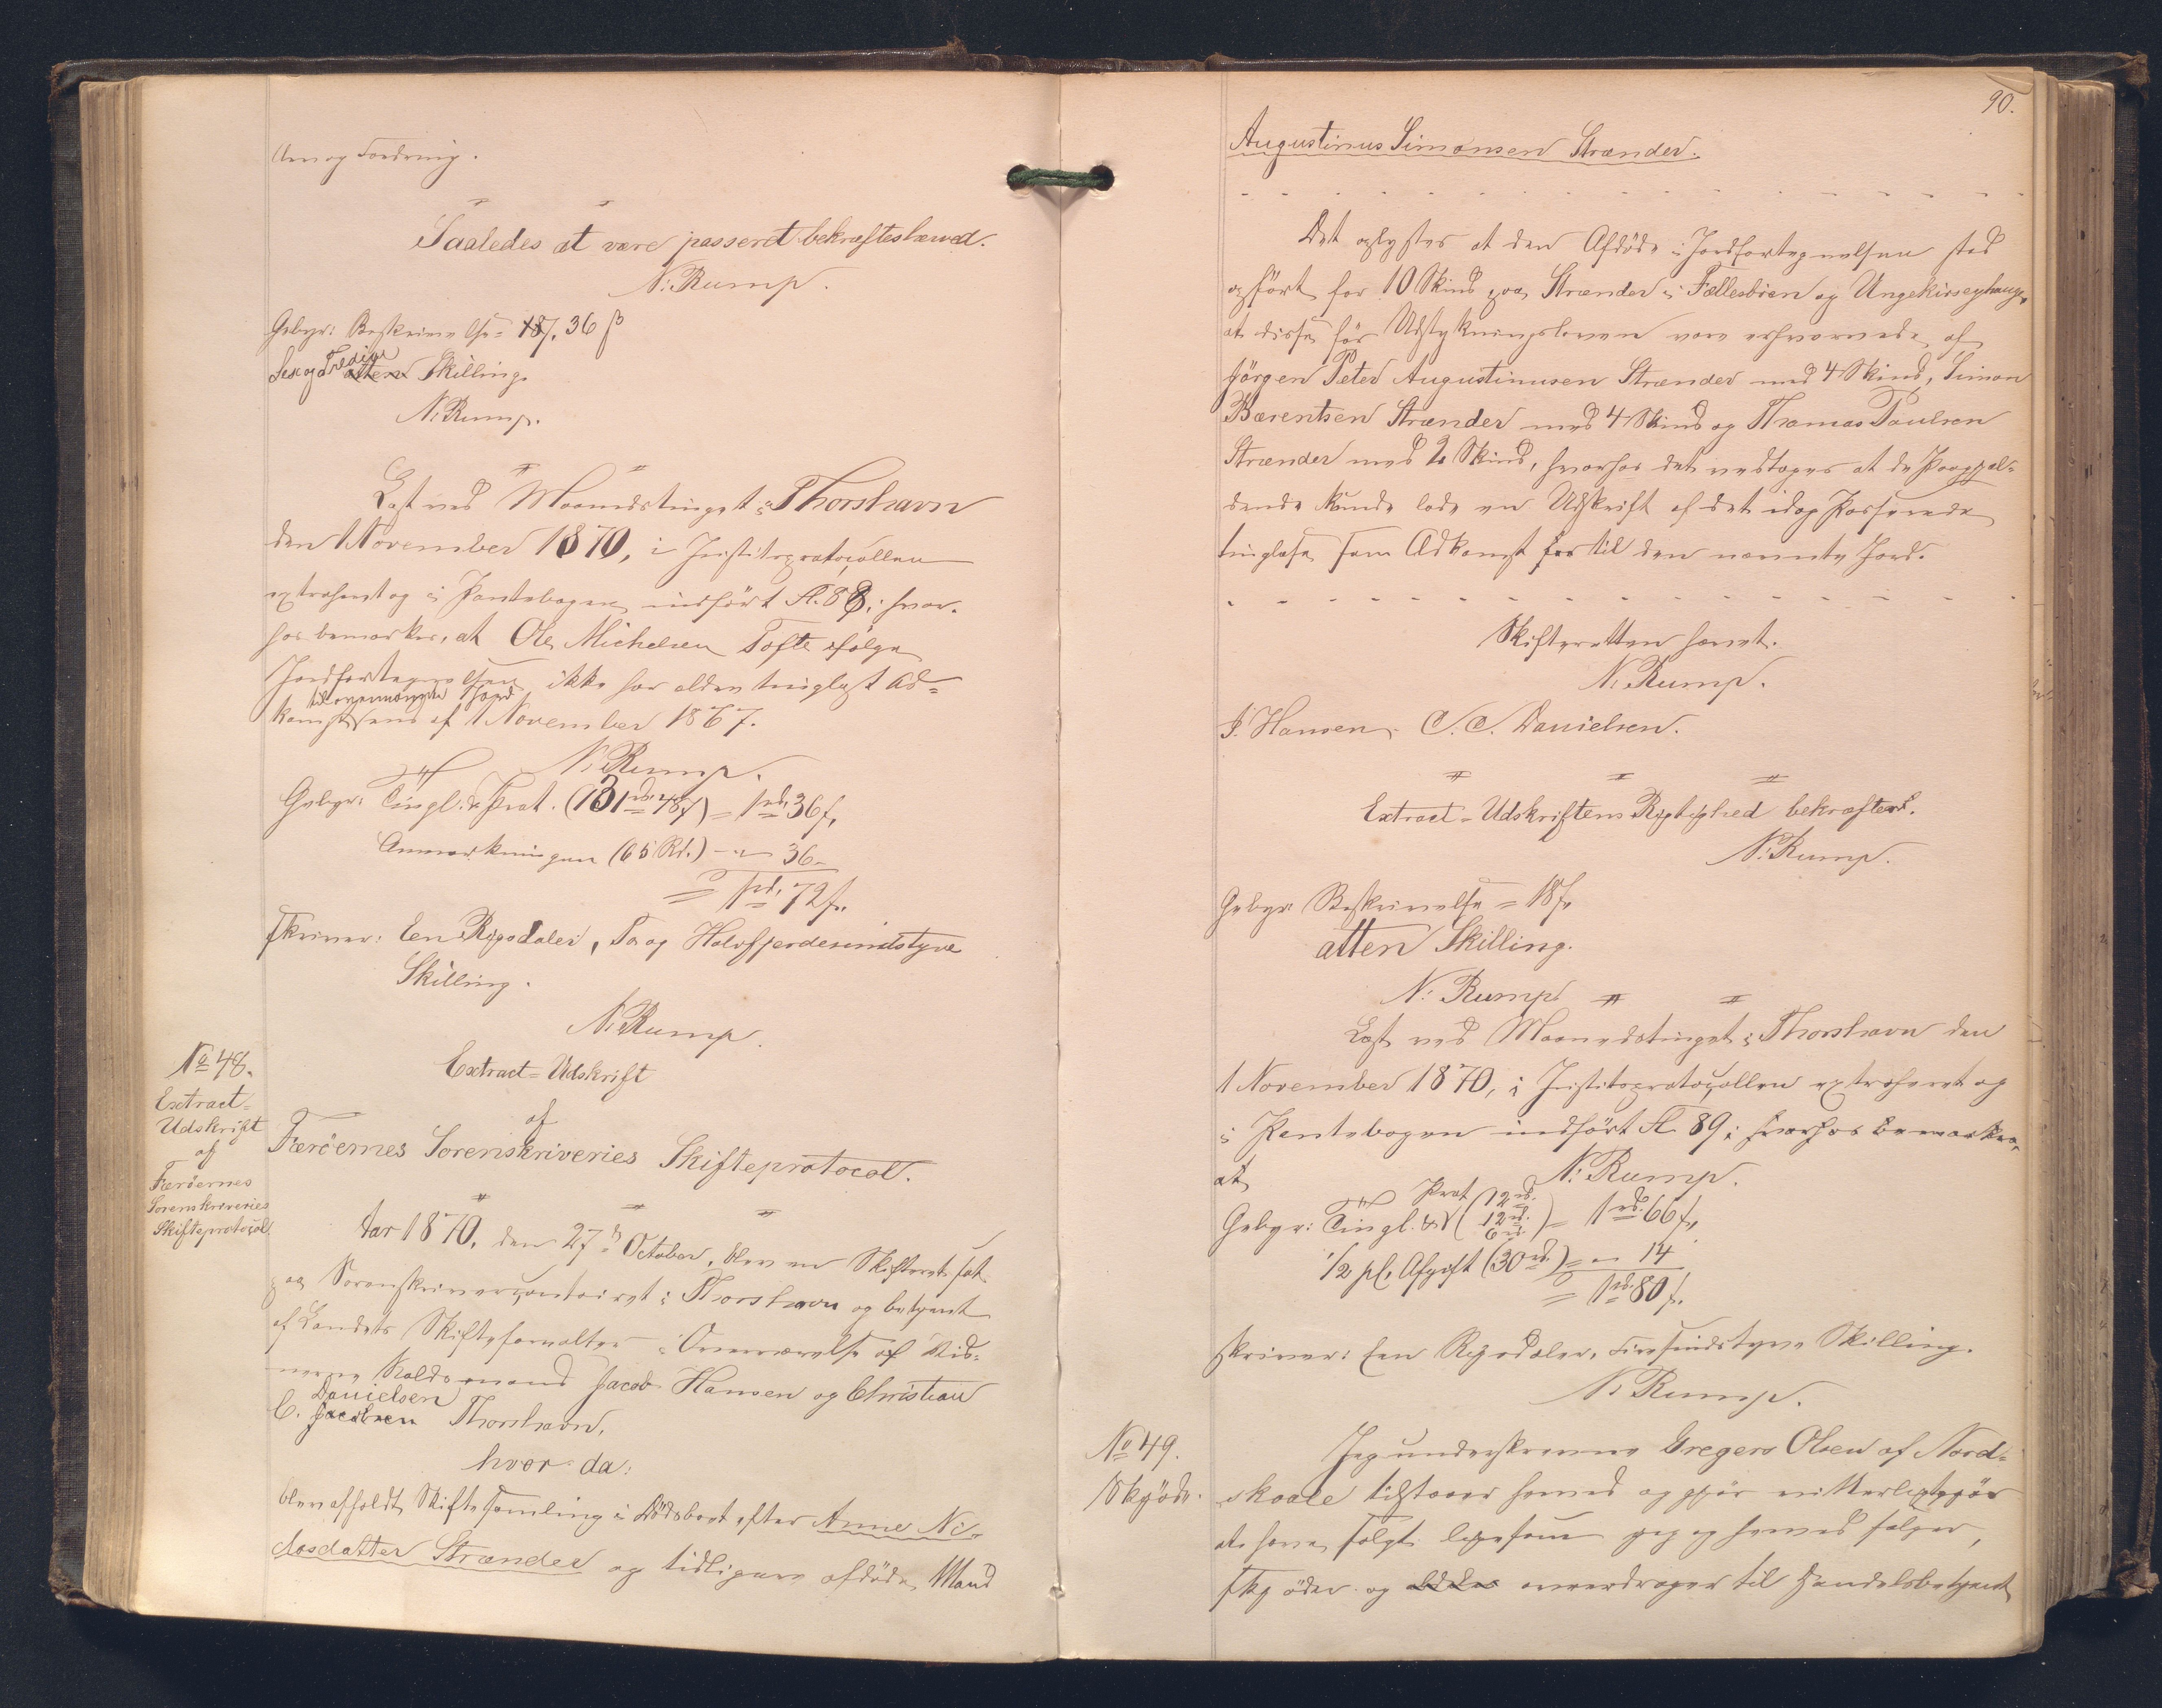 Saaledes at være passeret bekræftes herved.
N. Rump.
Gebyr: Beskrivelse = 36 ß
Sex og Tredive Skilling.
N. Rump.
Læst ved Maanedstinget i Thorshavn
den 1 November 1870, i Justitsprotocollen
extraheret og i Pantebogen indført Fl. 88; hvor-
hos bemærkes, at Ole Michelsen Tofte ifølge
Jordfortegnelsen ikke har anden tinglyst Ad-
til ovennævnte Jord
komst end af 1 November 1867.
N. Rump.
Gebyr: Tingl. & Prot. (131 rd. 48 ß) = 1 rd. 36 ß.
Anmærkningen (65 Rd.) - " - 36 -
= 1 rd. 72 ß.
skriver: Een Rigsdaler, To og Halvfjerdesindstyve
Skilling.
N. Rump.
No 48.
Extract-
Udskrift
af
Færöernes
Sorenskriveries
Skifteprotocol.
Extract-Udskrift
af
Færöernes Sorenskriveries Skifteprotocol.
Aar 1870, den 27de October, blev en Skifteret sat
paa Sorenskrivercontoiret i Thorshavn og betjent
af Landets Skifteforvalter i Overværelse af Vid-
nerne Kaldsmand Jacob Hansen og Christian
Danielsen
C. Jacobsen Thorshavn,
hvor da:
blev afholdt Skiftesamling i Dödsboet efter Anne Ni-
clasdatter Strænder og tidligere afdöde Mand
90.
Augustinus Simonsen Strænder.
Det oplystes at den Afdöde i Jordfortegnelsen stod
opfört for 10 Skind paa Strænder i Fællesbrien og
at disse för Udstykningsloven vare erhvervede af
Jörgen Peter Augustinusen Strænder med 4 Skind, Simon
Bærentsen Strænder med 4 Skind og Thomas Poulsen
Strænder med 2 Skind, hvorhos det vedtoges at de Paagjæl-
dende kunde lade en Udskrift af det idag Passerede
tinglæse som Adkomst til den nævnte Jord.
Skifteretten hævet.
N. Rump.
J. Hansen. C. C. Danielsen.
Extract-Udskriftens Rigtighed bekræftes.
N. Rump.
Gebyr Beskrivelse = 18 ß.
atten Skilling.
N. Rump
Læst ved Maanedstinget i Thorshavn den
1 November 1870, i Justitsprotocollen extraheret og
i Pantebogen indfört Fl 89; hvorhos bemærkes,
at
N. Rump.
Gebyr: Tingl. & Prot (12 rd. 12 rd. 6 rd.) = 1 rd. 66 ß.
1/2 pCt. Afgift (30 rd.) = " - 14
= 1 rd. 80 ß.
skriver: Een Rigsdaler, Firesindstyve Skilling.
N. Rump.
No 49.
Skjöde.
Jeg underskrevne Gregers Olsen af Nord-
skaale tilstaaer herved og gjör vitterligt
at have solgt ligesom jeg og herved sælger,
skjöder og overdrager til Handelsbetjent